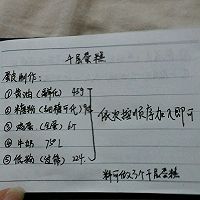 千层蛋糕
蛋皮制作:
① 黄油(融化) 45g
② 糖粉(细糖可代)
③ 鸡蛋(全蛋) 6个
④ 牛奶
⑤ 低粉(过筛)
依次按顺序加入即可
料可做3个千层蛋糕